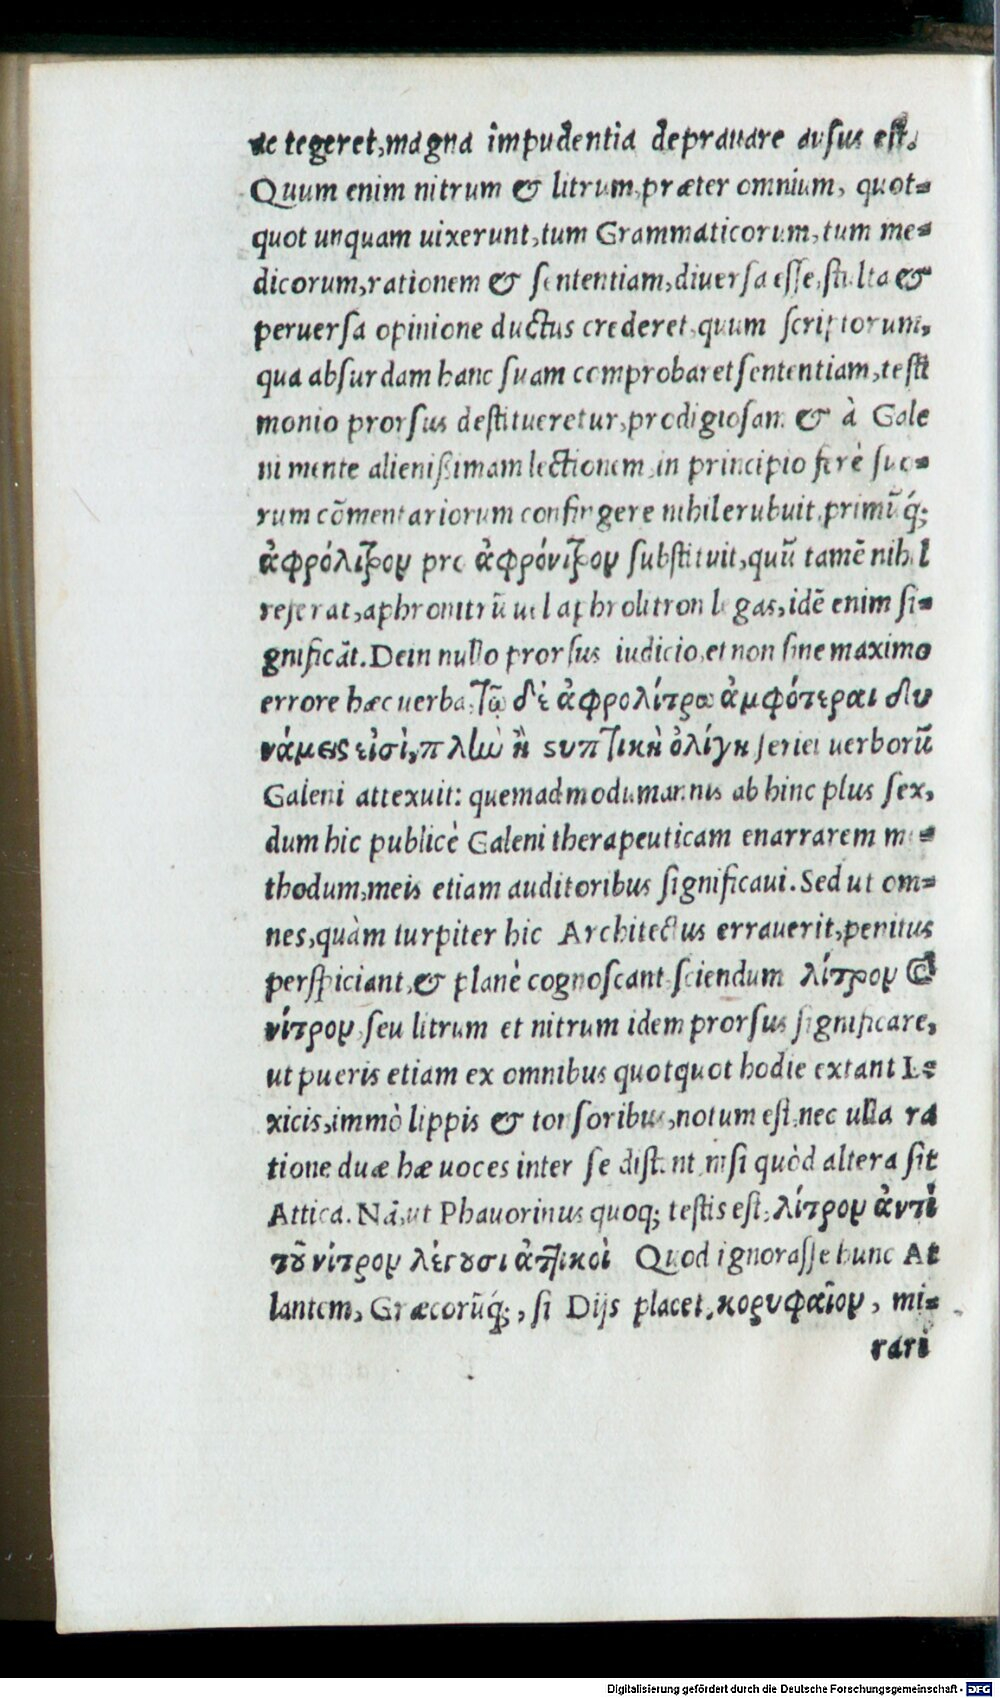 ac tegeret, magna impudentia deprauare ausus est.
Quum enim nitrum & litrum, præter omnium, quot=
quot unquam uixerunt, tum Grammaticorum, tum me=
dicorum, rationem & sententiam, diuersa esse, stulta &
peruersa opinione ductus crederet, quum scriptorum,
qua absurdam hanc suam comprobaret sententiam, testi
monio prorsus destitueretur, prodigiosam & à Gale
ni mente alienißimam lectionem, in principio ferè suo=
rum cōmentariorum confingere nihil erubuit, primūq́;
ἀφρόλιτρον pro ἀφρόνιτρον substituit, quū tamē nihil
referat, aphronitrū uel aphrolitron legas, idē enim si=
gnificāt. Dein nullo prorsus iudicio, et non sine maximo
errore hæc uerba, Τῷ δὲ ἀφρολίτρῳ ἀμφότεραι δυ
νάμεις εἰσὶ, πλὴν ἡ στυπτικὴ ὀλίγη seriei uerborū
Galeni attexuit: quemadmodum annis ab hinc plus sex,
dum hic publicè Galeni therapeuticam enarrarem me=
thodum, meis etiam auditoribus significaui. Sed ut om=
nes, quàm turpiter hic Architectus errauerit, penitus
perspiciant, & planè cognoscant, sciendum λίτρον &
νίτρον, seu litrum et nitrum idem prorsus significare,
ut pueris etiam ex omnibus quotquot hodie extant Le=
xicis, immò lippis & tonsoribus, notum est, nec ulla ra
tione duæ hæ uoces inter se distent, nisi quòd altera sit
Attica. Nā, ut Phauorinus quoq; testis est, λίτρον ἀντὶ
τοῦ νίτρον λέγουσι ἀττικοὶ Quod ignorasse hunc At
lantem, Græcorūq́;, si Dijs placet, κορυφαῖον, mi=
rari
Digitalisierung gefördert durch die Deutsche Forschungsgemeinschaft - DFG